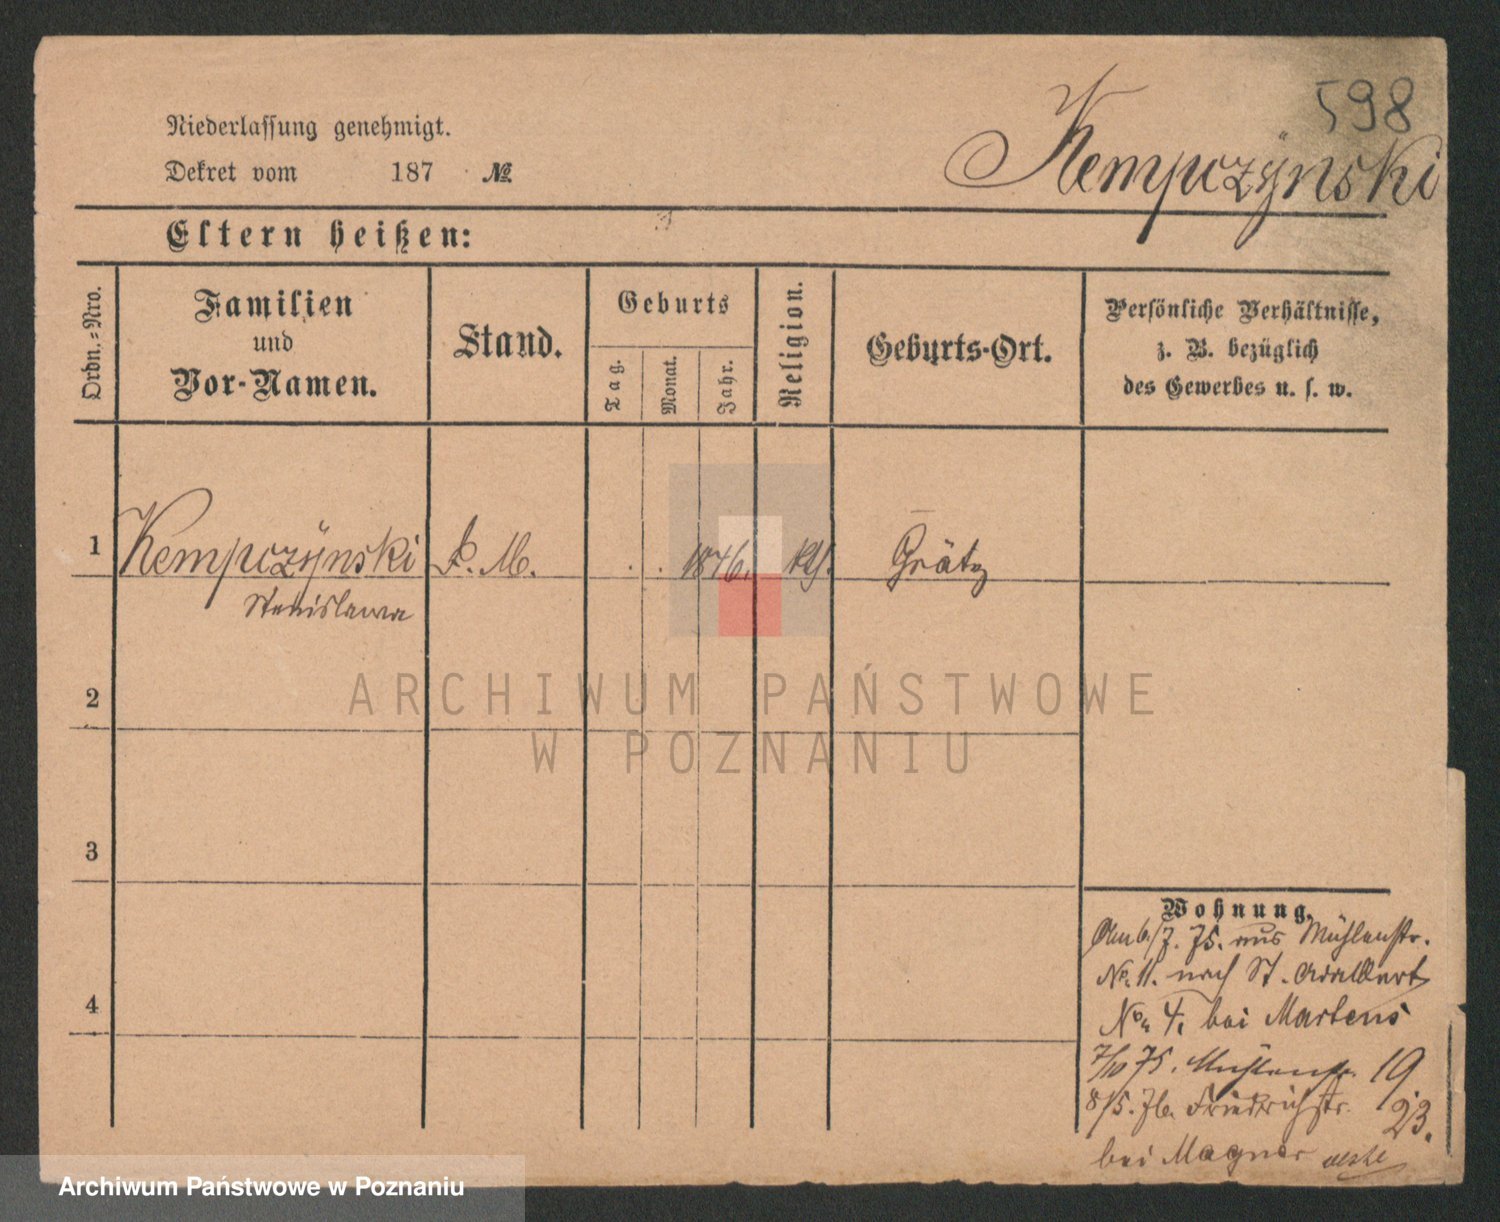 598
Kempczÿnski
Niederlassung genehmigt.
Dekret vom 187 №
Eltern heißen:
Ordn.-Nro.
Familien
und
Vor-Namen.
Stand.
Geburts
Tag.
Monat.
Jahr.
Religion.
Geburts-Ort.
Persönliche Verhältnisse,
z. B. bezüglich
des Gewerbes u. s. w.
1 Kempczÿnski D. M. . . 1846. kth. Grätz
Stanislawa
2
3
4
Wohnung.
Am 6/7. 75. aus Mühlenstr.
No. 11. nach St. Adalbert
No. 4. bei Martens
7/10 75. Mühlenstr. 19
8/5. 76. Friedrichstr. 23.
bei Magner
ARCHIWUM PAŃSTWOWE
W POZNANIU
Archiwum Państwowe w Poznaniu